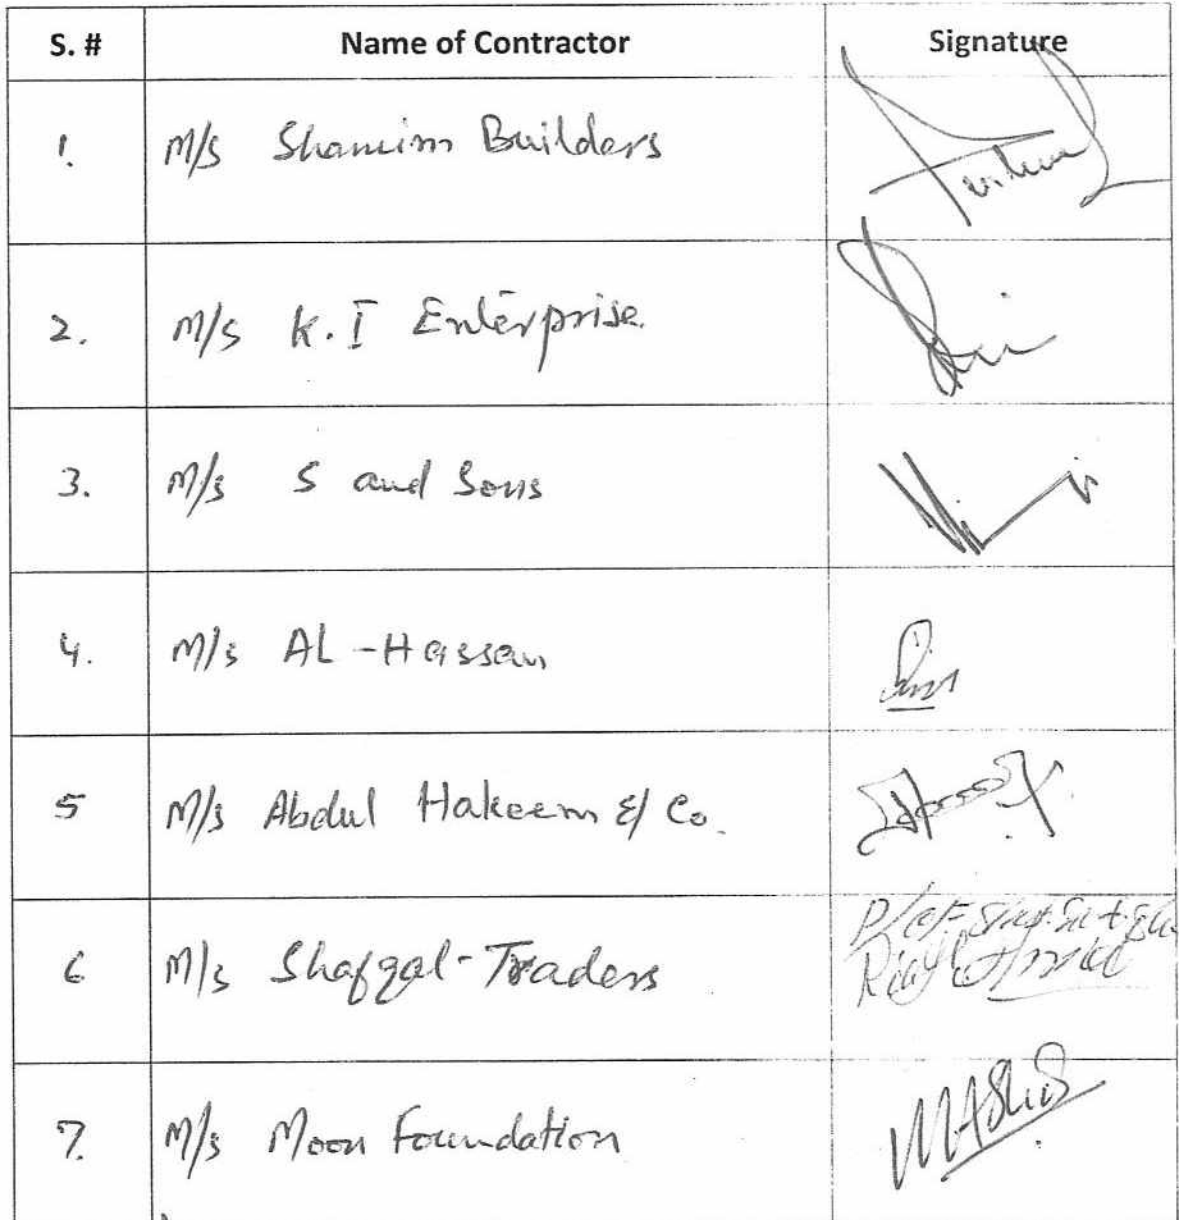 S. # Name of Contractor Signature
1. M/S Shamim Builders
2. M/S K.I Enterprise.
3. M/s S and Sons
4. M/s AL-Hassan
5 M/s Abdul Hakeem & Co.
6 M/s Shafqat-Traders
7. M/s Moon Foundation